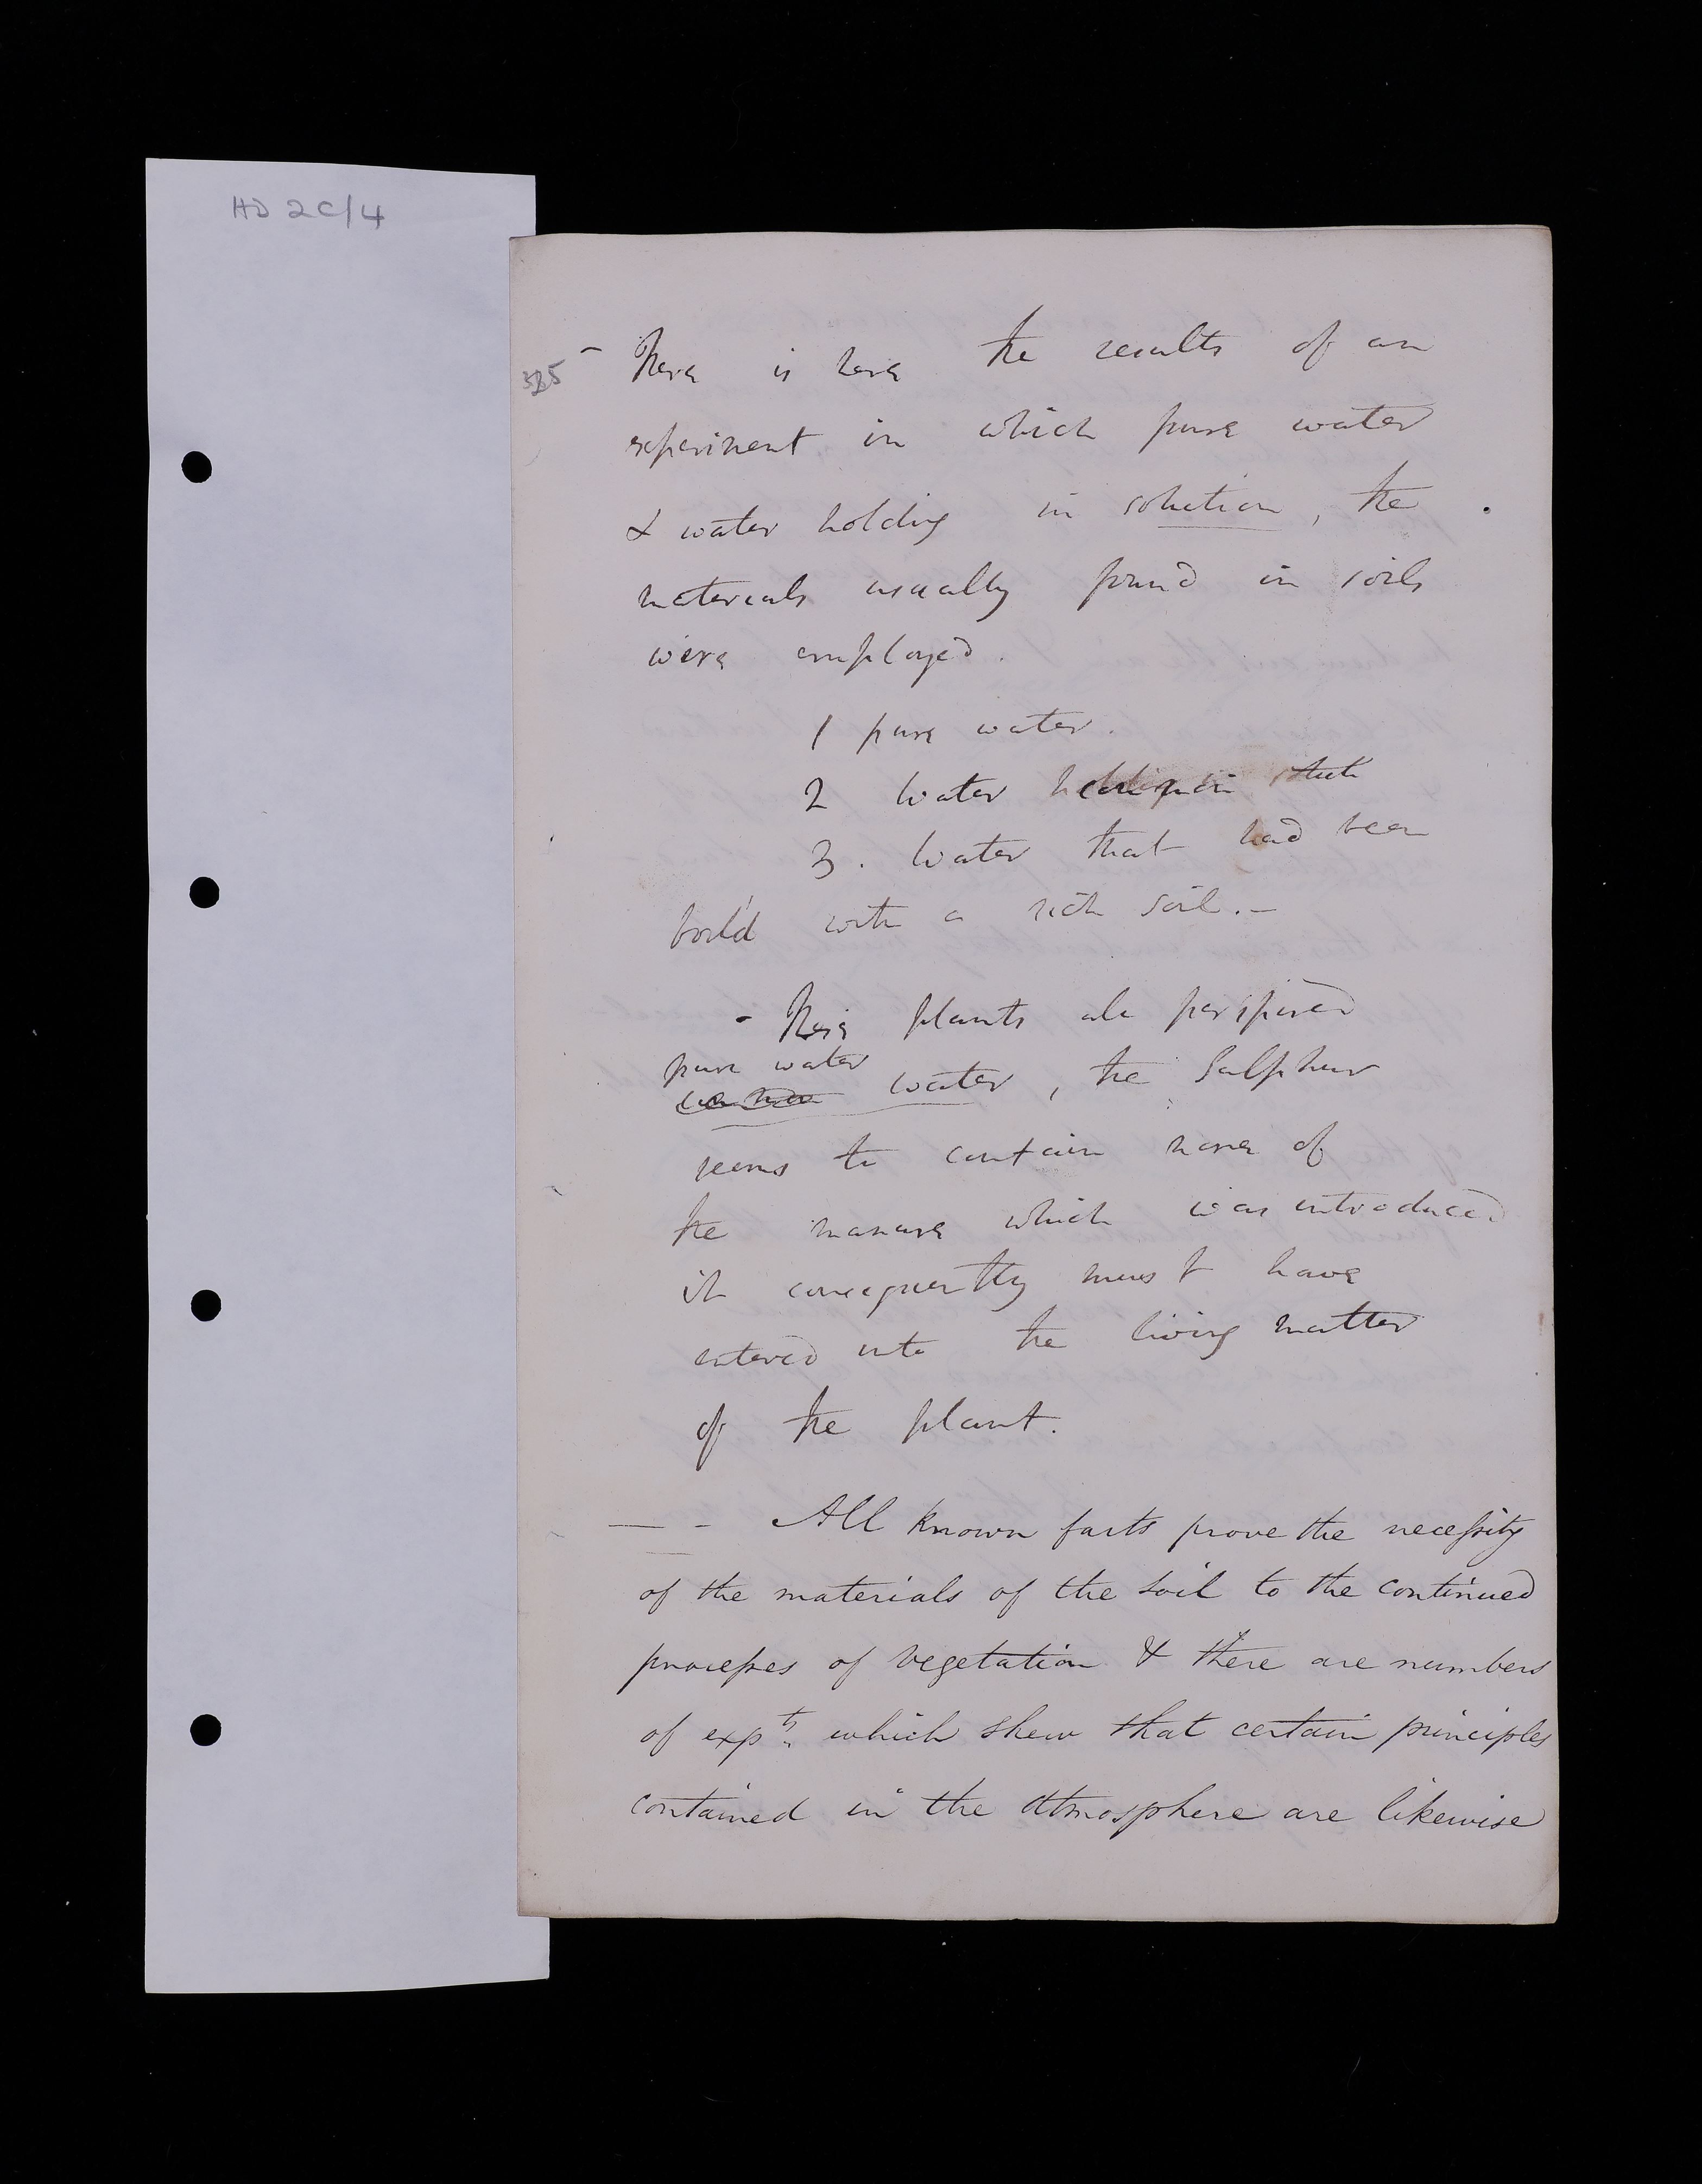 HD 2C/4
325 - There is here the results of an
experiment in which pure water
& water holding in solution, the
materials usually found in soils
were employed.
1 pure water.
2 Water
3. Water that had been
boil'd with a rich soil.-
- These plants all perspired
pure water
water, the Sulphur
seems to contain none of
the manure which was introduced
it consequently must have
entered into the living matter
of the plant.
— - All known facts prove the necessity
of the materials of the soil to the continued
processes of vegetation & there are numbers
of expts which shew that certain principles
contained in the Atmosphere are likewise